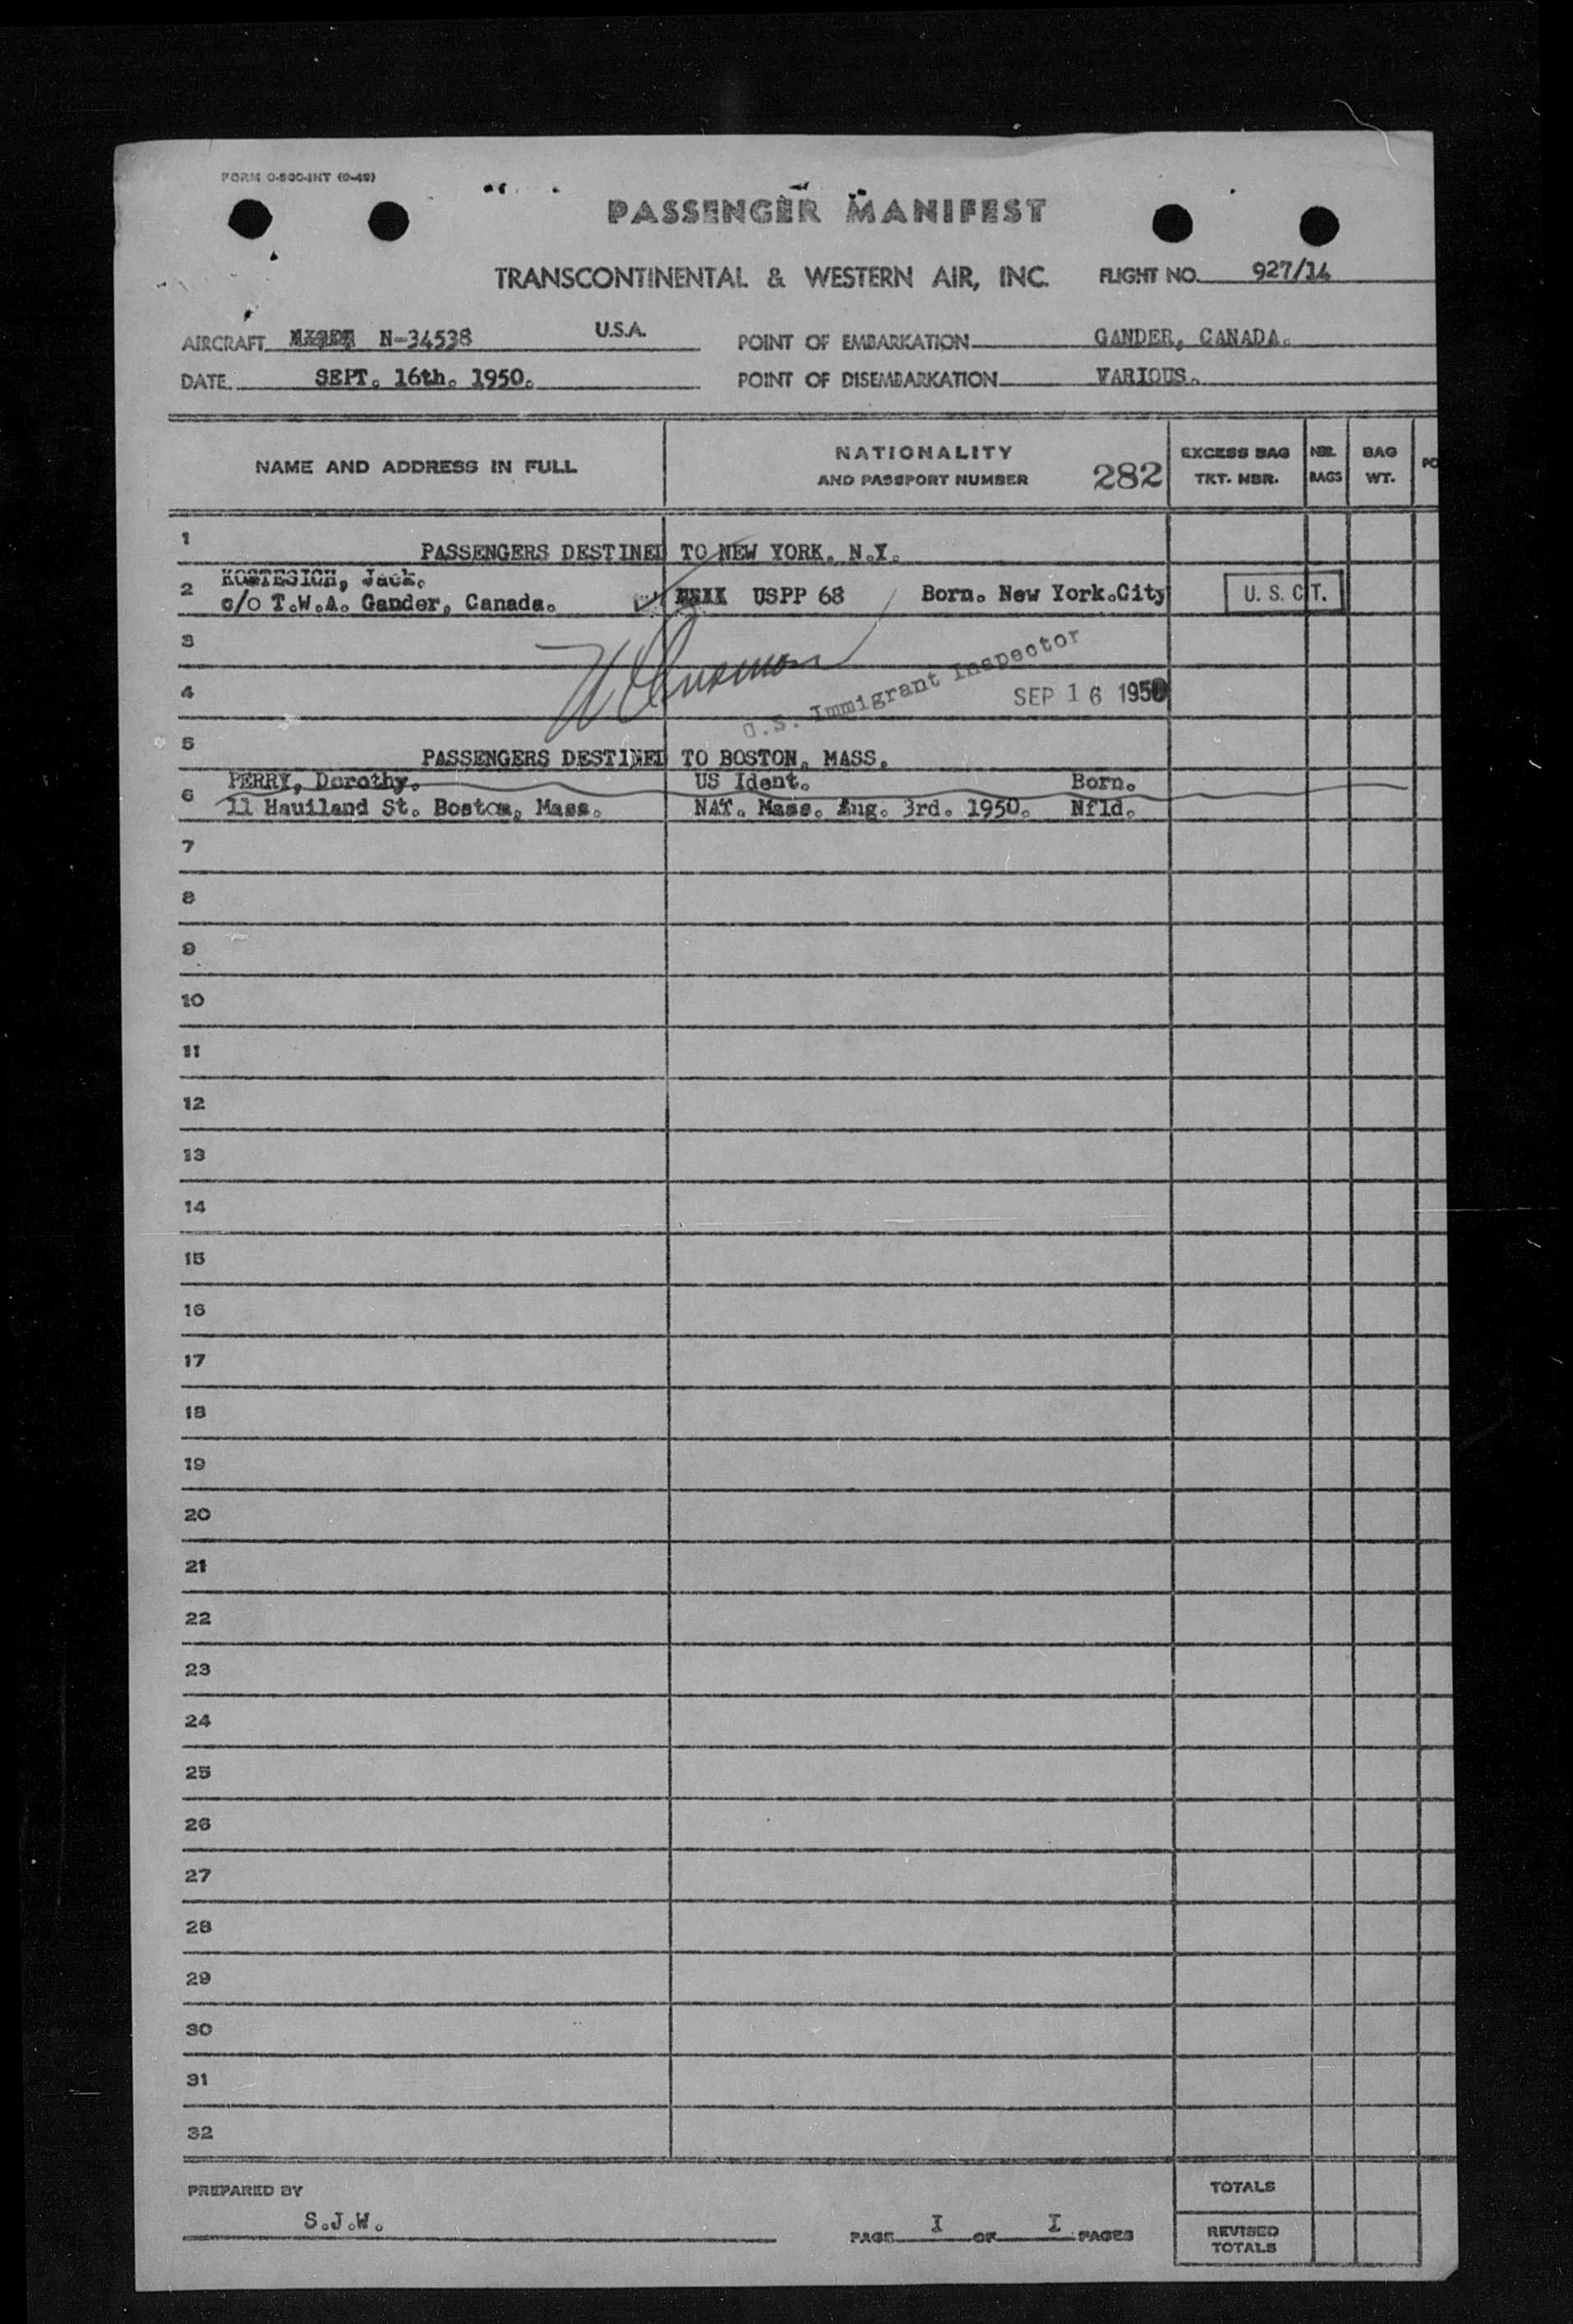 FORM O-500-INT (9-49)
PASSENGER MANIFEST
TRANSCONTINENTAL & WESTERN AIR, INC. FLIGHT NO. 927/14
AIRCRAFT N-34538 U.S.A. POINT OF EMBARKATION GANDER, CANADA.
DATE SEPT. 16th. 1950. POINT OF DISEMBARKATION VARIOUS.
NAME AND ADDRESS IN FULL NATIONALITY AND PASSPORT NUMBER 282 EXCESS BAG TKT. NBR. NBR. BAGS BAG WT. PO
1 PASSENGERS DESTINED TO NEW YORK. N.Y.
2 KOSTESICH, Jack.
c/o T.W.A. Gander, Canada. USPP 68 Born. New York.City U. S. C T.
3
U.S. Immigrant Inspector
4 SEP 16 1950
5 PASSENGERS DESTINED TO BOSTON, MASS.
PERRY, Dorothy. US Ident. Born.
6 11 Hauiland St. Boston, Mass. NAT. Mass. Aug. 3rd. 1950. Nfld.
7
8
9
10
11
12
13
14
15
16
17
18
19
20
21
22
23
24
25
26
27
28
29
30
31
32
PREPARED BY TOTALS
S.J.W.
PAGE I OF I PAGES REVISED TOTALS